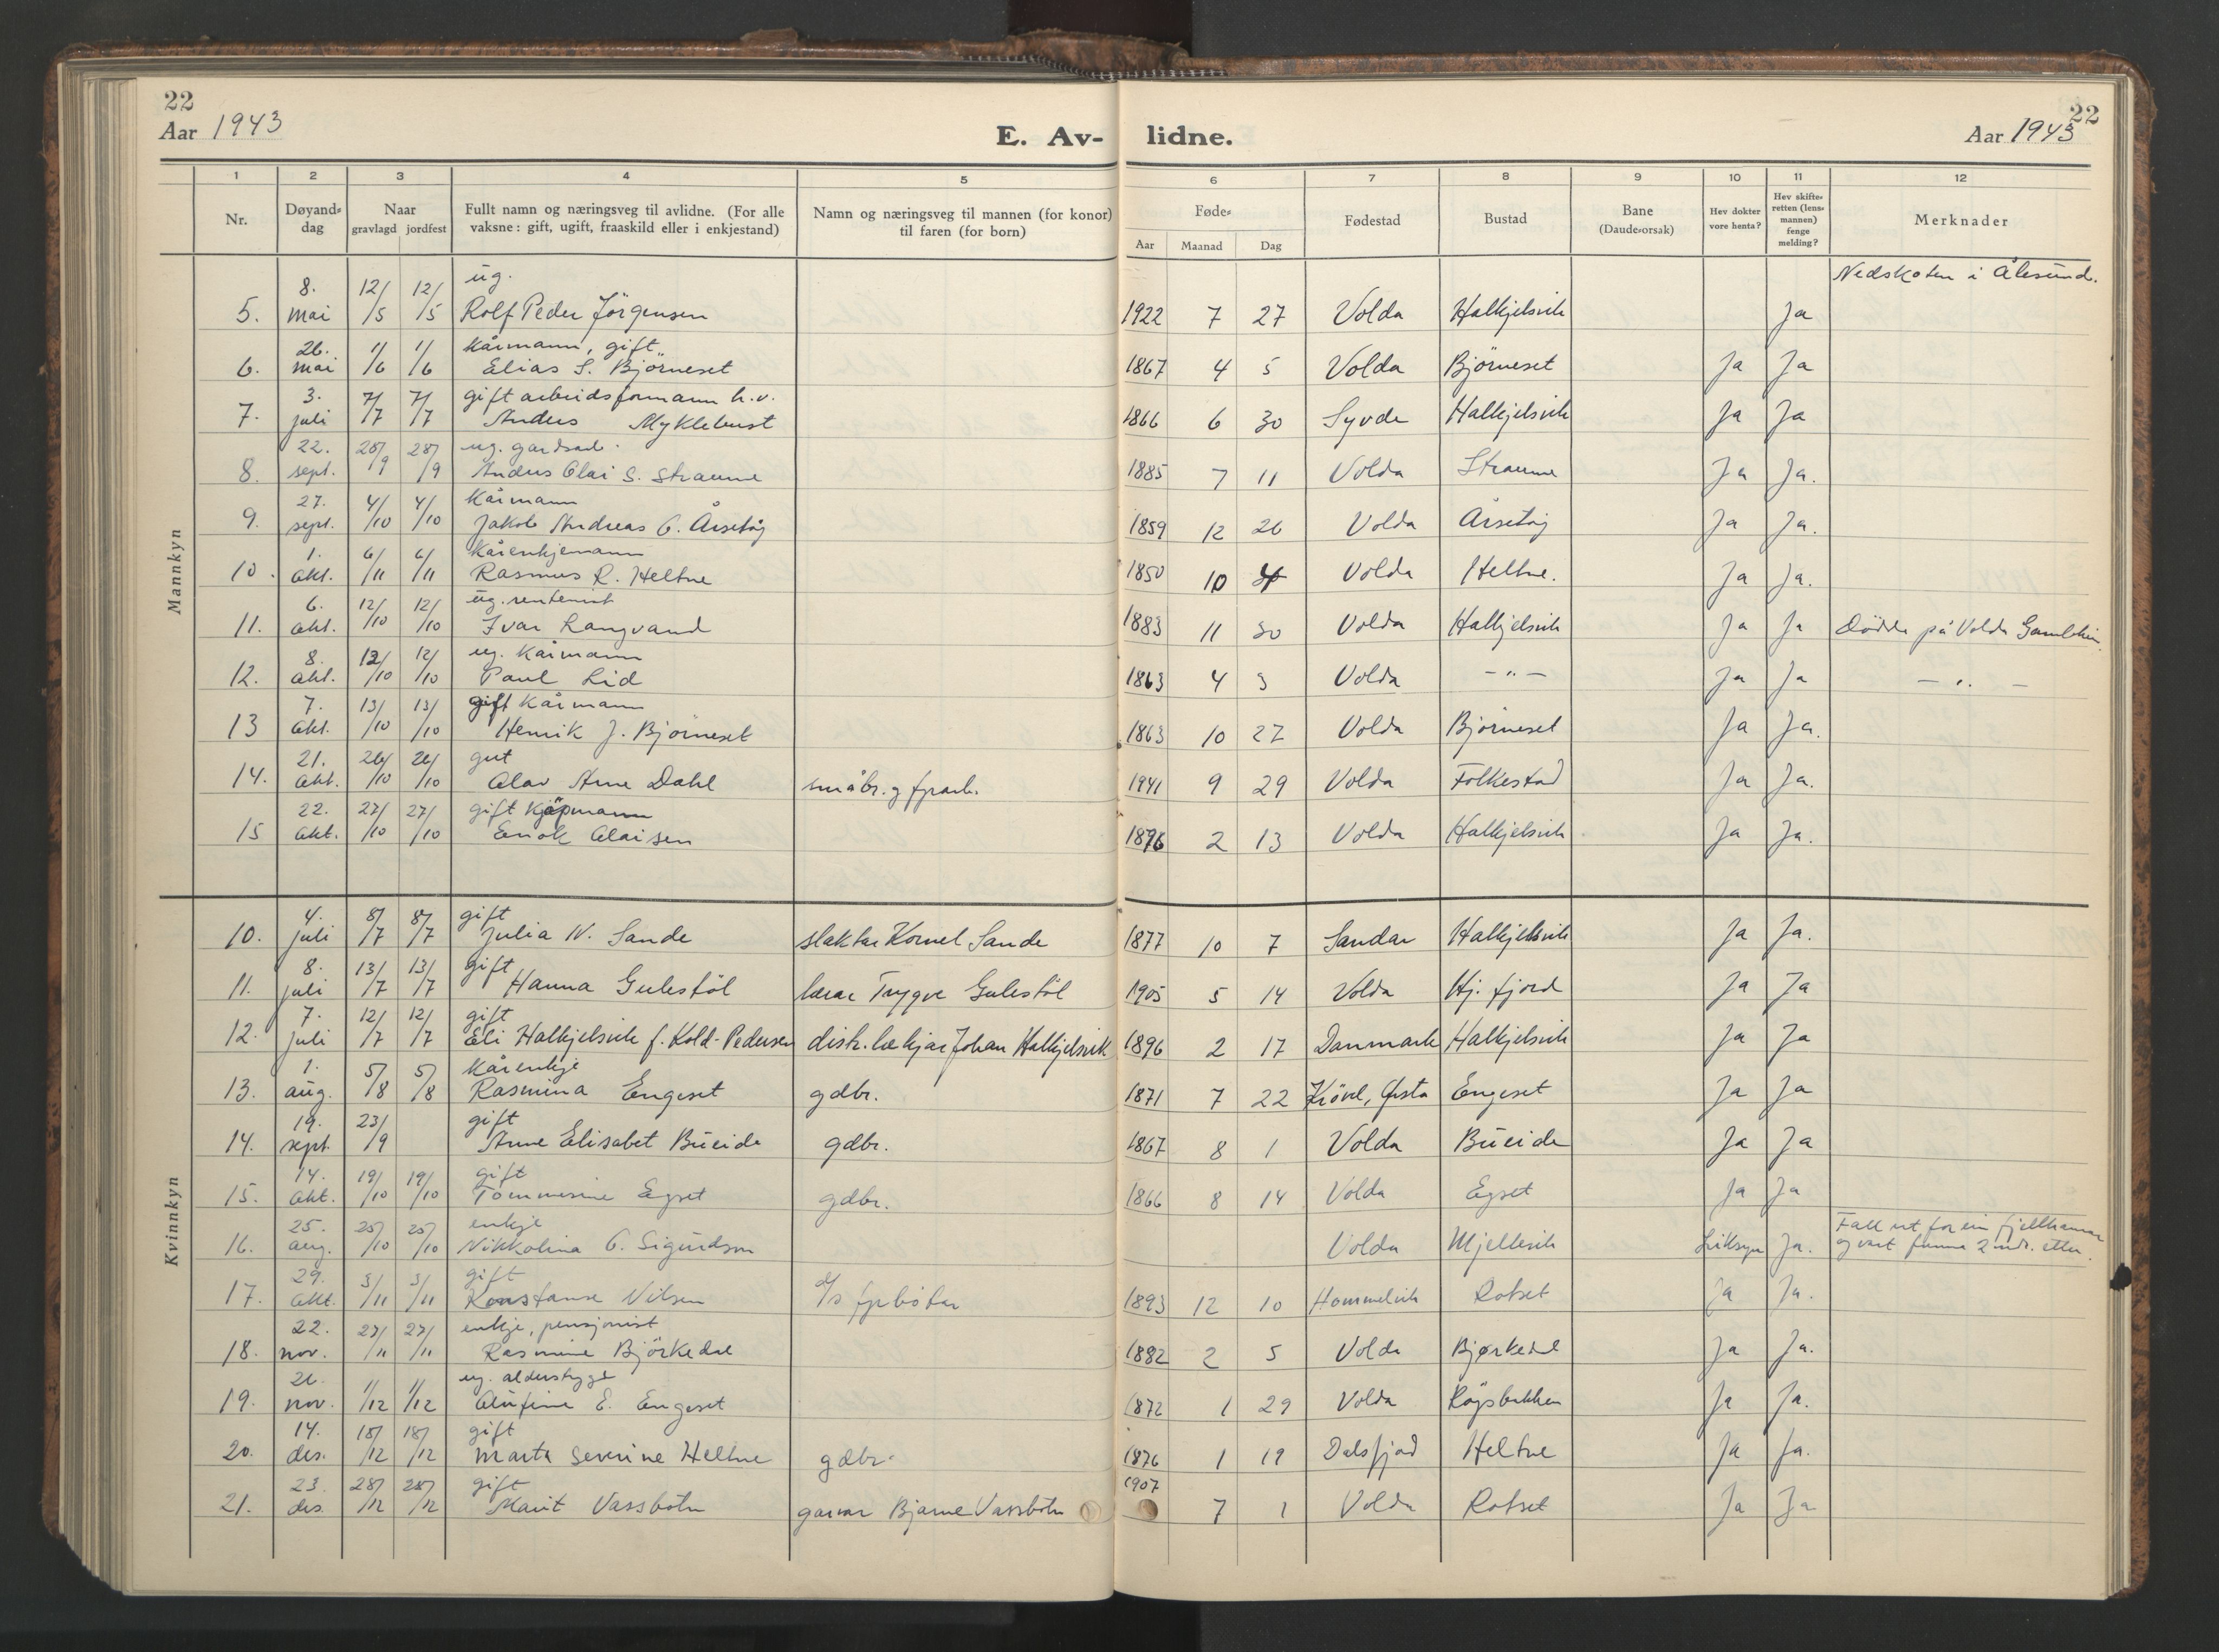 22
Aar 1943
E. Av-
lidne.
22
Aar 1943
1 2 3 4 5 6 7 8 9 10 11 12
Nr.
Døyand-
dag
Naar
gravlagd jordfest
Fullt namn og næringsveg til avlidne. (For alle
vaksne: gift, ugift, fraaskild eller i enkjestand)
Namn og næringsveg til mannen (for konor)
til faren (for born)
Føde-
Aar Maanad Dag
Fødestad
Bustad
Bane
(Daude-orsak)
Hev dokter
vore henta?
Hev skifte-
retten (lens-
mannen)
fenge
melding?
Merknader
Mannkyn
8. 12/ 12/ ug. Nedskoten i Ålesund.
5. mai /5 /5 Rolf Peder Jörgensen 1922 7 27 Volda Halkjelsvik Ja
26. 1/ 1/ Kårmann, gift
6. mai /6 /6 Elias S. Björneset 1867 4 5 Volda Björneset Ja Ja
3. 7/ 7/ gift arbeidsformann h.v.
7. juli /7 /7 Anders Myklebust 1866 6 30 Syvde Halkjelsvik Ja Ja
22. 28/ 28/ ug. gardsarb.
8. sept. /9 /9 Anders Olai S. Straume 1885 7 11 Volda Straume Ja Ja.
27. 4/ 4/ Kårmann
9. sept. /10 /10 Jakob Andreas O. Årsetöy 1859 12 26 Volda Årsetöy Ja Ja.
1. 6/ 6/ Kårenkjemann
10. okt. /11 /11 Rasmus R. Heltne 1850 10 4 Volda Heltne. Ja Ja.
6. 12/ 12/ ug. rentenist
11. okt. /10 /10 Ivar Langvand 1883 11 30 Volda Halkjelsvik Ja Ja Dödde på Volda Gamleheim.
8. 12/ 12/ ug. Kårmann
12. okt. /10 /10 Paul Lid 1863 4 3 Volda — " — Ja Ja — " —
7. 13/ 13/ gift Kårmann
13 okt. /10 /10 Henrik J. Björneset 1863 10 27 Volda Björneset Ja Ja.
21. 26/ 26/ gut
14. okt. /10 /10 Olav Arne Dahl småbr. og fgrarb. 1941 9 29 Volda Folkestad Ja Ja.
22. 27/ 27/ gift Kjöpmann
15 okt. /10 /10 Enok Olaisen 1896 2 13 Volda Halkjelsvik Ja Ja.
Kvinnkyn
4. 8/ 8/ gift
10. juli /7 /7 Julia N. Sande slaktar Kornel Sande 1877 10 7 Sandar Halkjelsvik Ja Ja.
8. 13/ 13/ gift
11. juli /7 /7 Hanna Gulestöl lærar Trygve Gulestöl 1905 5 14 Volda Hj. fjord Ja Ja
7. 12/ 12/ gift
12. juli /7 /7 Eli Halkjelsvik f. Kold-Pedersen distr. lækjar Johan Halkjelsvik 1896 2 17 Danmark Halkjelsvik Ja Ja
1. 5/ 5/ Kårenkje
13. aug. /8 /8 Rasmina Engeset gdbr. 1871 7 22 Ørsta Engeset Ja Ja
19. 23/ gift
14. sept. /9 Anne Elisabet Bueide gdbr. 1867 8 1 Volda Bueide Ja Ja
14. 19/ 19/ gift
15. okt. /10 /10 Tommesine Egset gdbr. 1866 8 14 Volda Egset Ja Ja
25. 25/ 25/ enkje Fall ut for ein fjellhamar
16. aug. /10 /10 Nikkolina O. Sigurdson Volda Mjellevik Liksyn Ja. og vart funne 2 mdr. etter.
29. 3/ 3/ gift
17. okt. /11 /11 Konstanse Nilsen d/s fyrbötar 1893 12 10 Hommelvik Rotset Ja Ja.
22. 27/ 27/ enkje, pensjonist
18. nov. /11 /11 Rasmine Björkedal 1882 2 5 Volda Bjørkedal Ja Ja.
26. 1/ 1/ ug. alderstrygd
19. nov. /12 /12 Olufine E. Engeset 1872 1 29 Volda Röysbakken Ja Ja.
14. 18/ 18/ gift
20. des. /12 /12 Marta Severine Heltne gdbr. 1876 1 19 Dalsfjord Heltne Ja Ja.
23. 28/ 28/ gift 1907
21. des. /12 /12 Marit Vassbotn garvar Bjarne Vassbotn 7 1 Volda Rotset Ja Ja